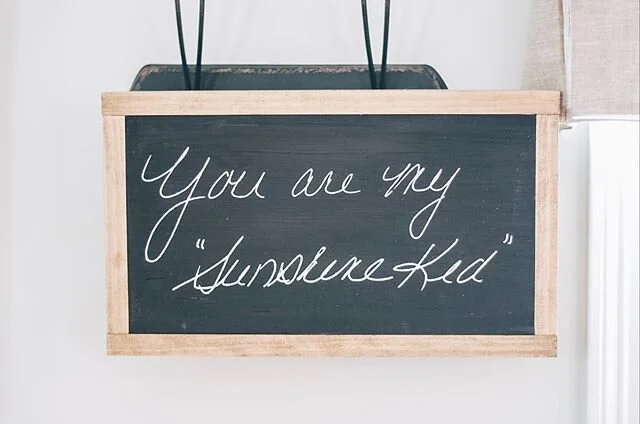 You are my
"Sunshine Kid"